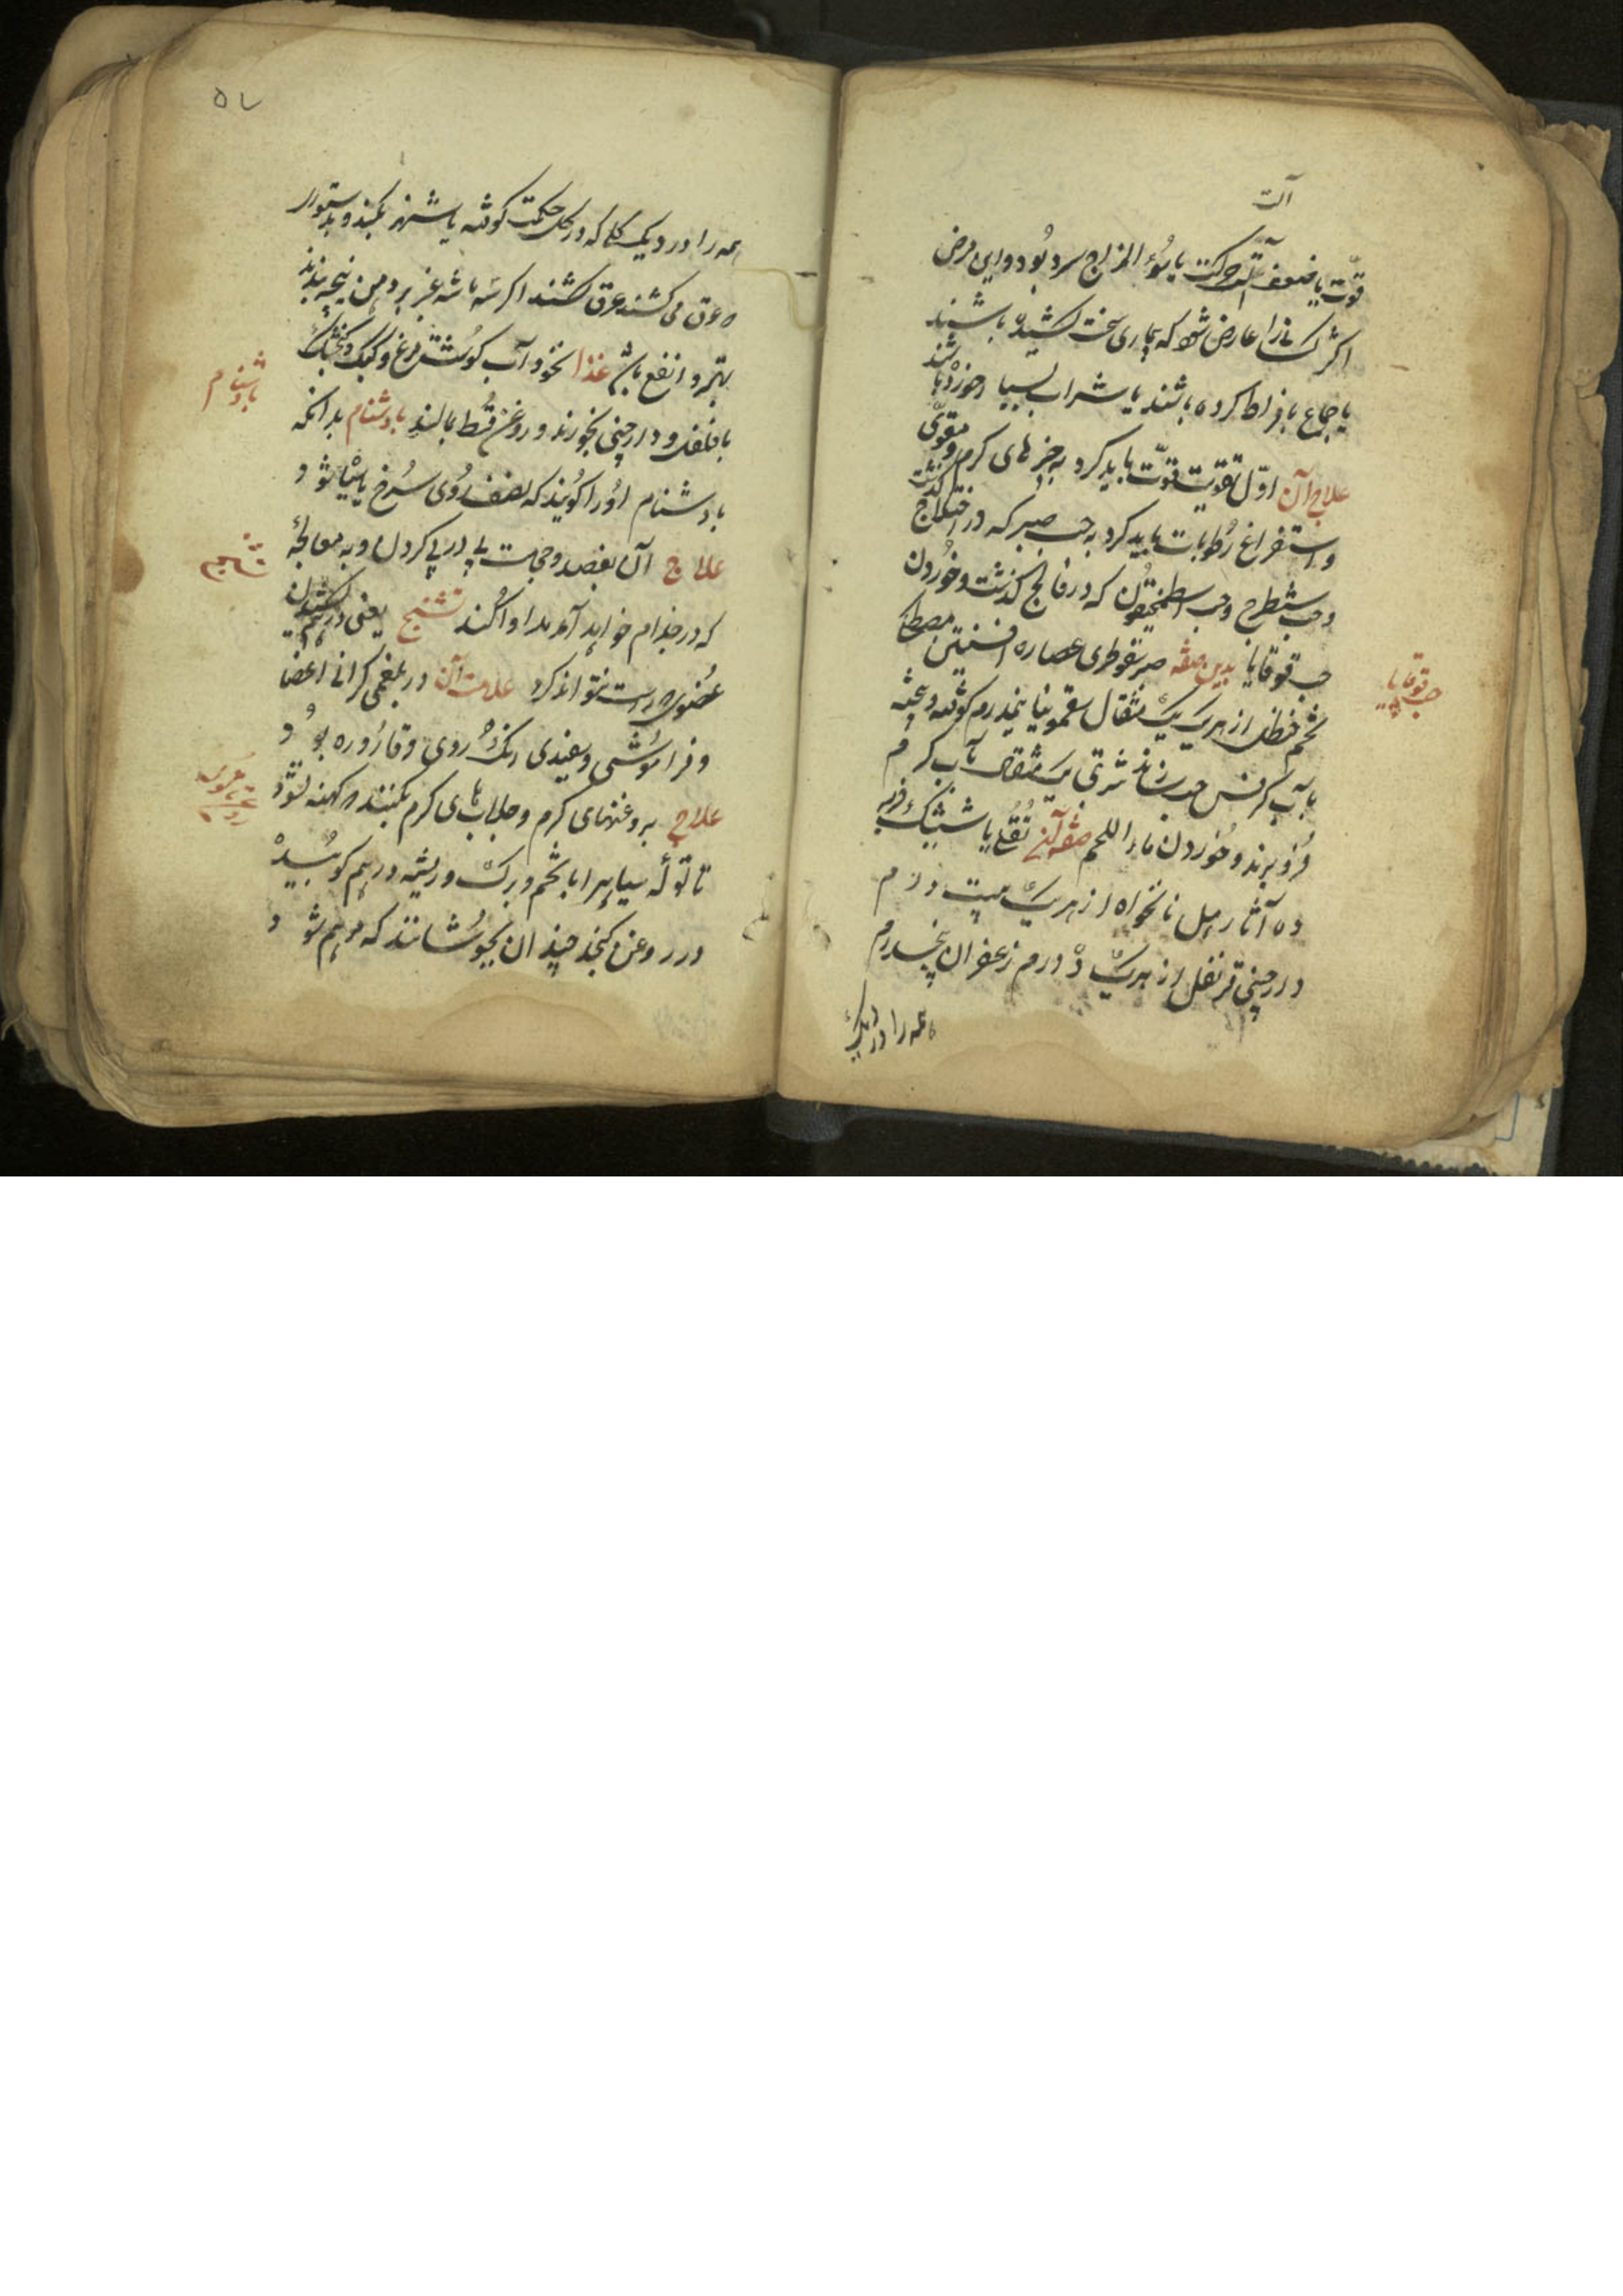 آلت
قوّت یا ضعف آلت حرکت یا سُوء المزاج سرد بُود و این مرض
اکثر کسانی را عارض شود که بیماری سخت کشیده باشند
یا جماع بافراط کرده باشند یا شراب بسیار خورده باشند
علاج آن اوّل تقویت قوّت باید کرد به چیزهای کرم و مقوّی
و استفراغ رُطوبات باید کرد به حب صبر که در اختلاج کذشت
و حب شیطرج و حب اسطمخیقون که در فالج کذشت و خُوردن
حب قوقایا بدین صفه صبر سقوطری عصاره افسنتین مصطکی
حب قوقایا
تخم حنظل از هر یک یک مثقال سقمونیا نیمدرم کوفته و بیخته
بآب کرفس حب سازند شربتی یک مثقال بآب کرم
فرُو برند و خُوردن ماء اللحم صفه آن
ده آثار هیل نانخواه از هر یک بیست درم
دارچینی قرنفل از هر یک دَه درم زعفران پنجدرم
همه را در دیک
۵۷
همه را در دیک کلی که در کل حکمت کوفته باشند بکنند و بدستور
که عرق می کشند عرق کشند اکر
بهتر و انفع باشد غذا نخود آب کوشت مرغ و کبک و کنجشک
با فلفل و دارچینی بخورند و روغن قُسط بمالند بادشنام بدانکه
بادشنام
بادشنام اورا کویند که نصف رُوی سُرخ یا سیاه شود
علاج آن بفصد و حجامت پی در پی کردن و به معالجهٔ
که در جذام خواهد آمد مداوا کنند تشنج یعنی درهم کشیدن
تشنج
عُضوی که راست نتواند کرد علامت آن در بلغمی کرانی اعضا
و فراموُشی و سفیدی رنک روی و قارُوره بُود
علاج بروغنهای کرم و جلاب های کرم بکنند که کهنه نشود
تاتوله سیاه را با تخم و برک و ریشه درهم کوبیده
در روغن کنجد چندان بجوُشانند که مرهم شود